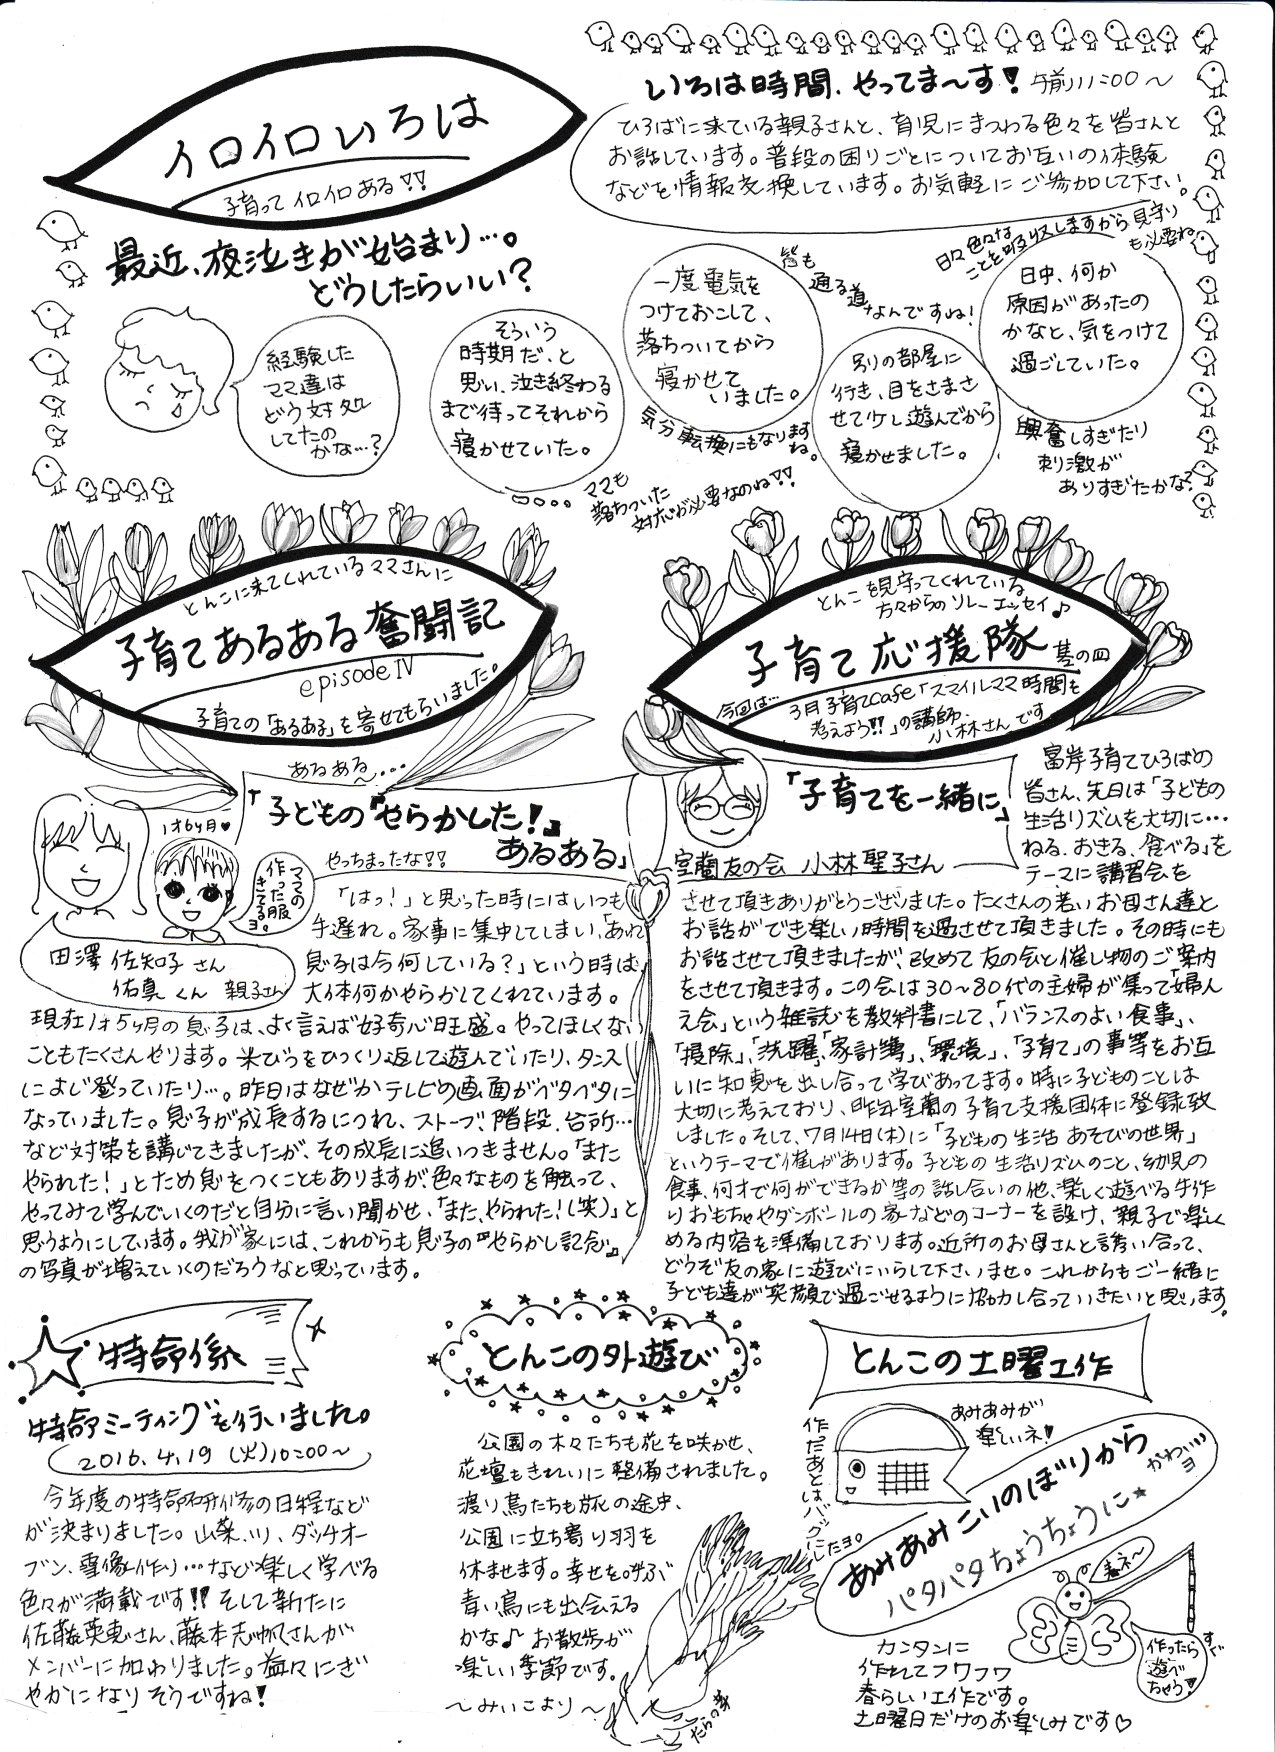 イロイロいろは
子育ってイロイロある!!
いろは時間、やってま〜す! 午前11:00〜
ひろばに来ている親子さんと、育児にまつわる色々を皆さんと
お話しています。普段の困りごとについてお互いの体験
などを情報交換しています。お気軽にご参加して下さい。
最近、夜泣きが始まり…。
どうしたらいい?
経験した
ママ達は
どう対処
してたの
かな…?
そういう
時期だ、と
思い、泣き終わる
まで待ってそれから
寝かせていた。
ママも
落ちついた
対応が必要なのね!!
一度電気を
つけておこして、
落ちついてから
寝かせて
いました。
気分転換にもなります
ね。
皆も
通る道
なんですね!
別の部屋に
行き、目をさまさ
せて少し遊んでから
寝かせました。
日々色々な
ことを吸収しますから見守り
も必要ね
日中、何か
原因があったの
かなと、気をつけて
過ごしていた。
興奮しすぎたり
刺激が
ありすぎたかな?
とんこに来てくれているママさんに
子育てあるある奮闘記
episodeⅣ
子育ての「あるある」を寄せてもらいました。
あるある〜…
「子どもの『やらかした!』
あるある」
やっちまったな!!
1才6ヶ月♥
ママの
作った服
きてるヨ。
田澤 佐知子さん
佑真くん 親子さん
「はっ!」と思った時にはいつも
手遅れ。家事に集中してしまい、「あれ
息子は今何している?」という時は
大体何かやらかしてくれています。
現在1才5ヶ月の息子は、よく言えば好奇心旺盛。やってほしくない
こともたくさんやります。米びつをひっくり返して遊んでいたり、タンス
によじ登っていたり…。昨日はなぜかテレビの画面がベタベタに
なっていました。息子が成長するにつれ、ストーブ、階段、台所…
など対策を講じてきましたが、その成長に追いつきません。「また
やられた!」とため息をつくこともありますが、色々なものを触って、
やってみて学んでいくのだと自分に言い聞かせ、「また、やられた!(笑)」と
思うようにしています。我が家には、これからも息子の『やらかし記念』
の写真が増えていくのだろうなと思っています。
とんこを見守ってくれている
方々からのリレーエッセイ♪
子育て応援隊 其の四
今回は…
3月子育てcafe「スマイルママ時間も
考えよう!!」の講師、
小林さんです
「子育てを一緒に」
室蘭友の会 小林聖子さん
富岸子育てひろばの
皆さん、先日は「子どもの
生活リズムを大切に…
ねる、おきる、食べる」を
テーマに講習会を
させて頂きありがとうございました。たくさんの若いお母さん達と
お話ができ楽しい時間を過させて頂きました。その時にも
お話させて頂きましたが、改めて友の会と催し物のご案内
をさせて頂きます。この会は30〜80代の主婦が集って「婦人
之友」という雑誌を教科書にして、「バランスのよい食事」、
「掃除」、「洗濯」、「家計簿」、「環境」、「子育て」の事等をお互
いに知恵を出し合って学びあってます。特に子どものことは
大切に考えており、昨年室蘭の子育て支援団体に登録致
しました。そして、7月14日(木)に「子どもの生活 あそびの世界」
というテーマで催しがあります。子どもの生活リズムのこと、幼児の
食事、何才で何ができるか等の話し合いの他、楽しく遊べる手作
りおもちゃやダンボールの家などのコーナーを設け、親子で楽し
める内容を準備しております。近所のお母さんと誘い合って、
どうぞ友の家に遊びにいらして下さいませ。これからもご一緒に
子ども達が笑顔で過ごせるように協力し合っていきたいと思います。
特命係
特命ミーティングを行いました。
2016.4.19(火)10:00〜
今年度の特命研修の日程など
が決まりました。山菜、ソリ、ダッチオー
ブン、雪像作り…など楽しく学べる
色々が満載です!! そして新たに
佐藤英恵さん、藤本志帆さんが
メンバーに加わりました。益々にぎ
やかになりそうですね!
とんこの外遊び
公園の木々たちも花を咲かせ、
花壇もきれいに整備されました。
渡り鳥たちも旅の途中、
公園に立ち寄り羽を
休ませます。幸せを呼ぶ
青い鳥にも出会える
かな♪お散歩が
楽しい季節です。
〜みいこより〜
たらの芽
とんこの土曜工作
あみあみが
楽しいネ!
作ったあとはバックにしたヨ。
あみあみこいのぼりから
パタパタちょうちょうに★
かわいいヨ
春ネ〜
カンタンに
作れてフワフワ
春らしい工作です。
土曜日だけのお楽しみです♡
作ったら
すぐ
遊べ
ちゃう!